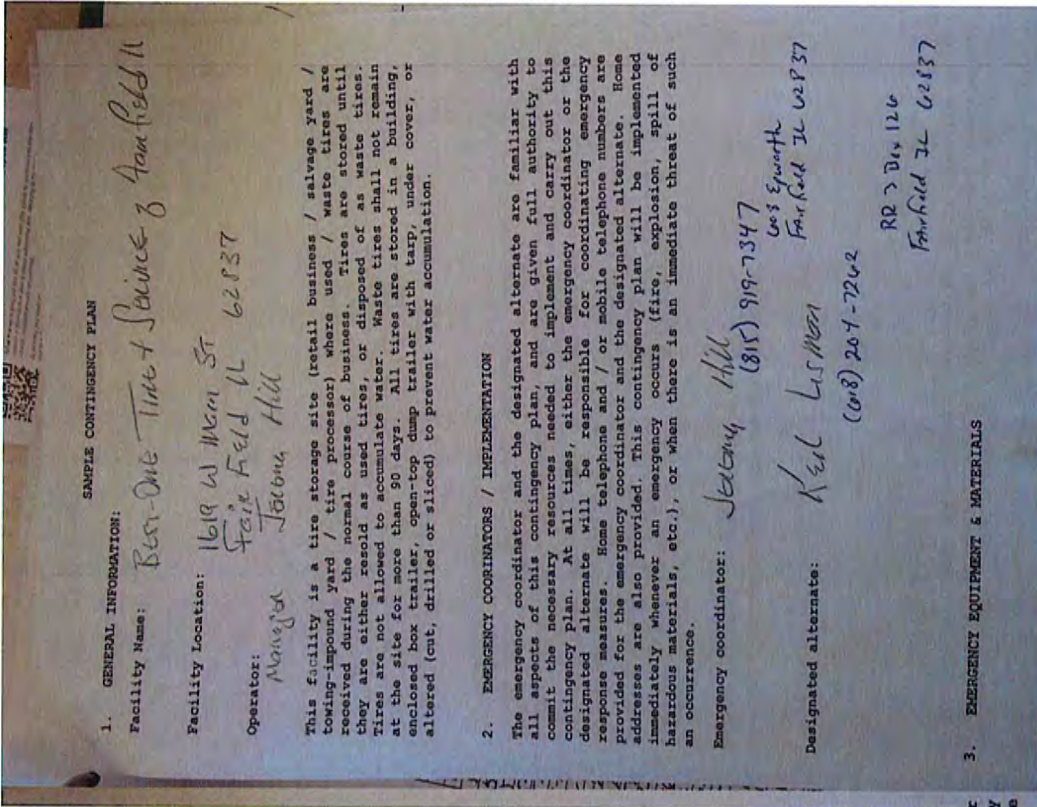 SAMPLE CONTINGENCY PLAN
1. GENERAL INFORMATION:
Facility Name: Best-One Tire & Service of Fairfield Il
Facility Location: 1619 W Main St
Fair Field IL 62837
Operator:
Manager Hill
This facility is a tire storage site (retail business / salvage yard /
towing-impound yard / tire processor) where used / waste tires are
received during the normal course of business. Tires are stored until
they are either resold as used tires, or disposed of as waste tires.
Tires are not allowed to accumulate water. Waste tires shall not remain
at the site for more than 90 days. All tires are stored in a building,
enclosed box trailer, open-top dump trailer with tarp, under cover, or
altered (cut, drilled or sliced) to prevent water accumulation.
2. EMERGENCY COORINATORS / IMPLEMENTATION
The emergency coordinator and the designated alternate are familiar with
all aspects of this contingency plan, and are given full authority to
commit the necessary resources needed to implement and carry out this
contingency plan. At all times, either the emergency coordinator or the
designated alternate will be responsible for coordinating emergency
response measures. Home telephone and / or mobile telephone numbers are
provided for the emergency coordinator and the designated alternate. Home
addresses are also provided. This contingency plan will be implemented
immediately whenever an emergency occurs (fire, explosion, spill of
hazardous materials, etc.), or when there is an immediate threat of such
an occurrence.
Emergency coordinator: Hill
(815) 919-7347
Epworth
Fairfield IL 62837
Designated alternate:
(618) 204-7262
RR 3 Box 126
Fairfield IL 62837
3. EMERGENCY EQUIPMENT & MATERIALS